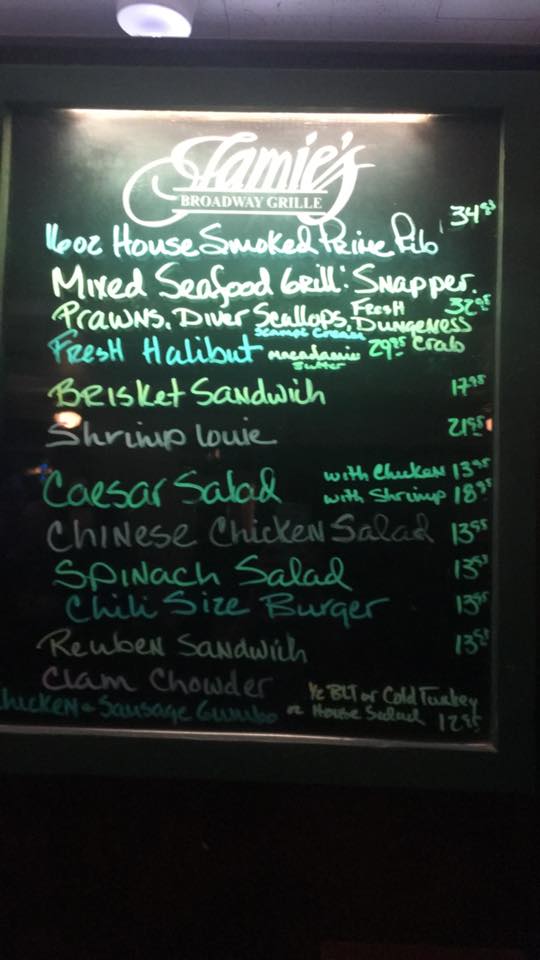 Jamie's
BROADWAY GRILLE
16oz House Smoked Prime Rib 34.95
Mixed Seafood Grill: Snapper.
Prawns, Diver Scallops, Fresh Dungeness Crab 32.95
Fresh Halibut macadamia butter 29.95
Brisket Sandwich 17.95
Shrimp Louie 21.95
Caesar Salad with Chicken 13.95
with Shrimp 18.95
Chinese Chicken Salad 13.95
Spinach Salad 13.95
Chili Size Burger 13.95
Reuben Sandwich 13.95
Clam Chowder
Chicken & Sausage Gumbo
1/2 BLT or Cold Turkey
or House Salad 12.95